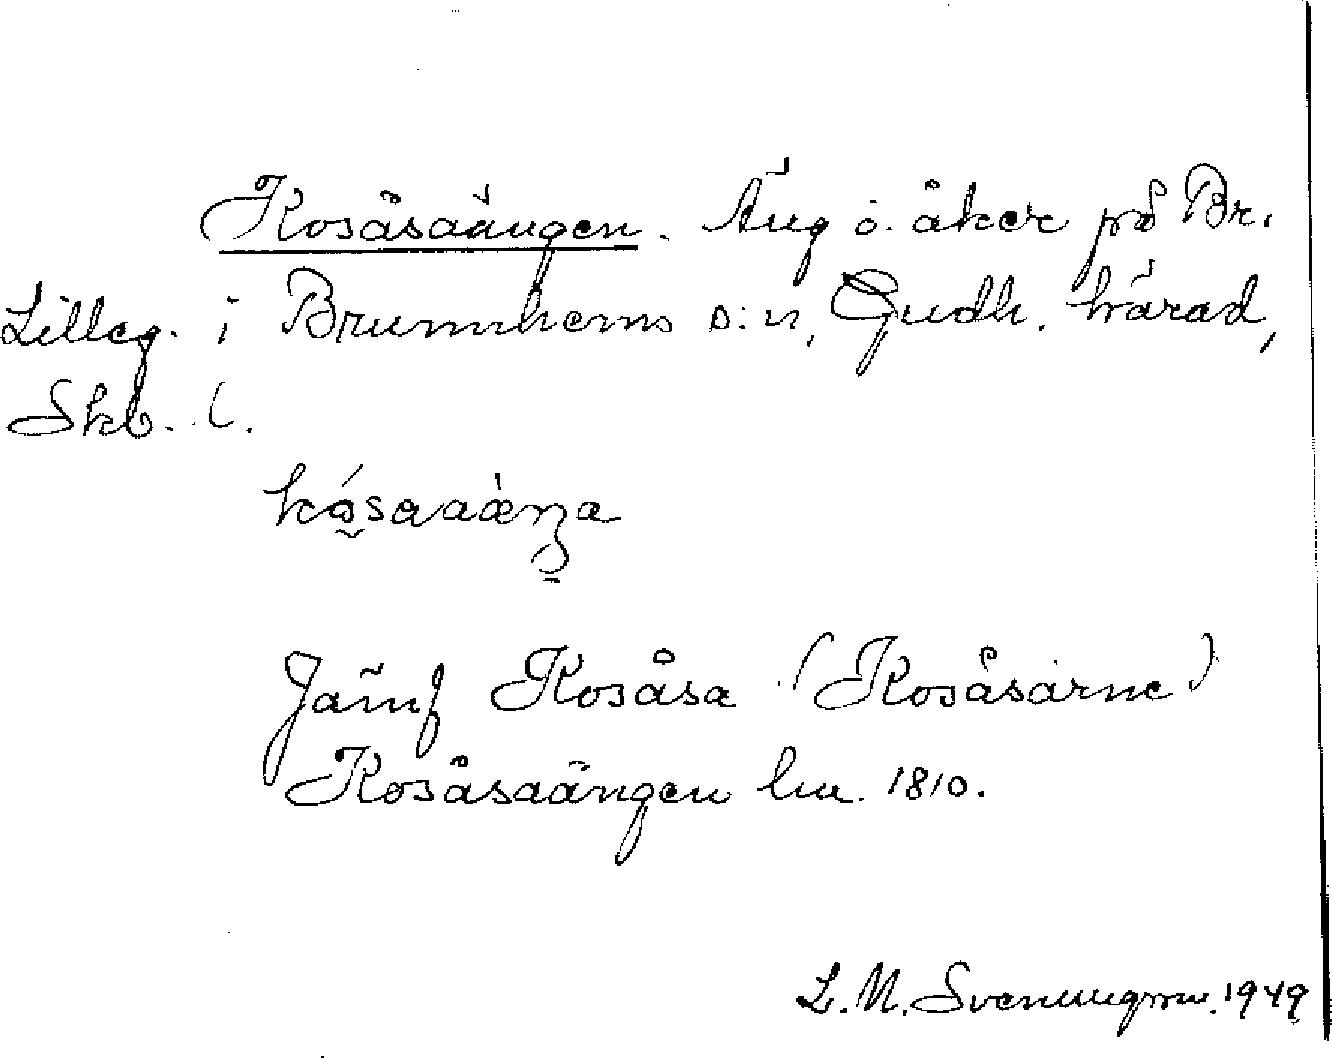 Kosåsaängen. Äng o. åker på Br.
Lilleg. i Brunnhems s:n, Gudh. härad,
Skb. l.
Jämf Kosåsa (Kosåsarne)
Kosåsaängen lm. 1810.
L. M. Svenungsson. 1949